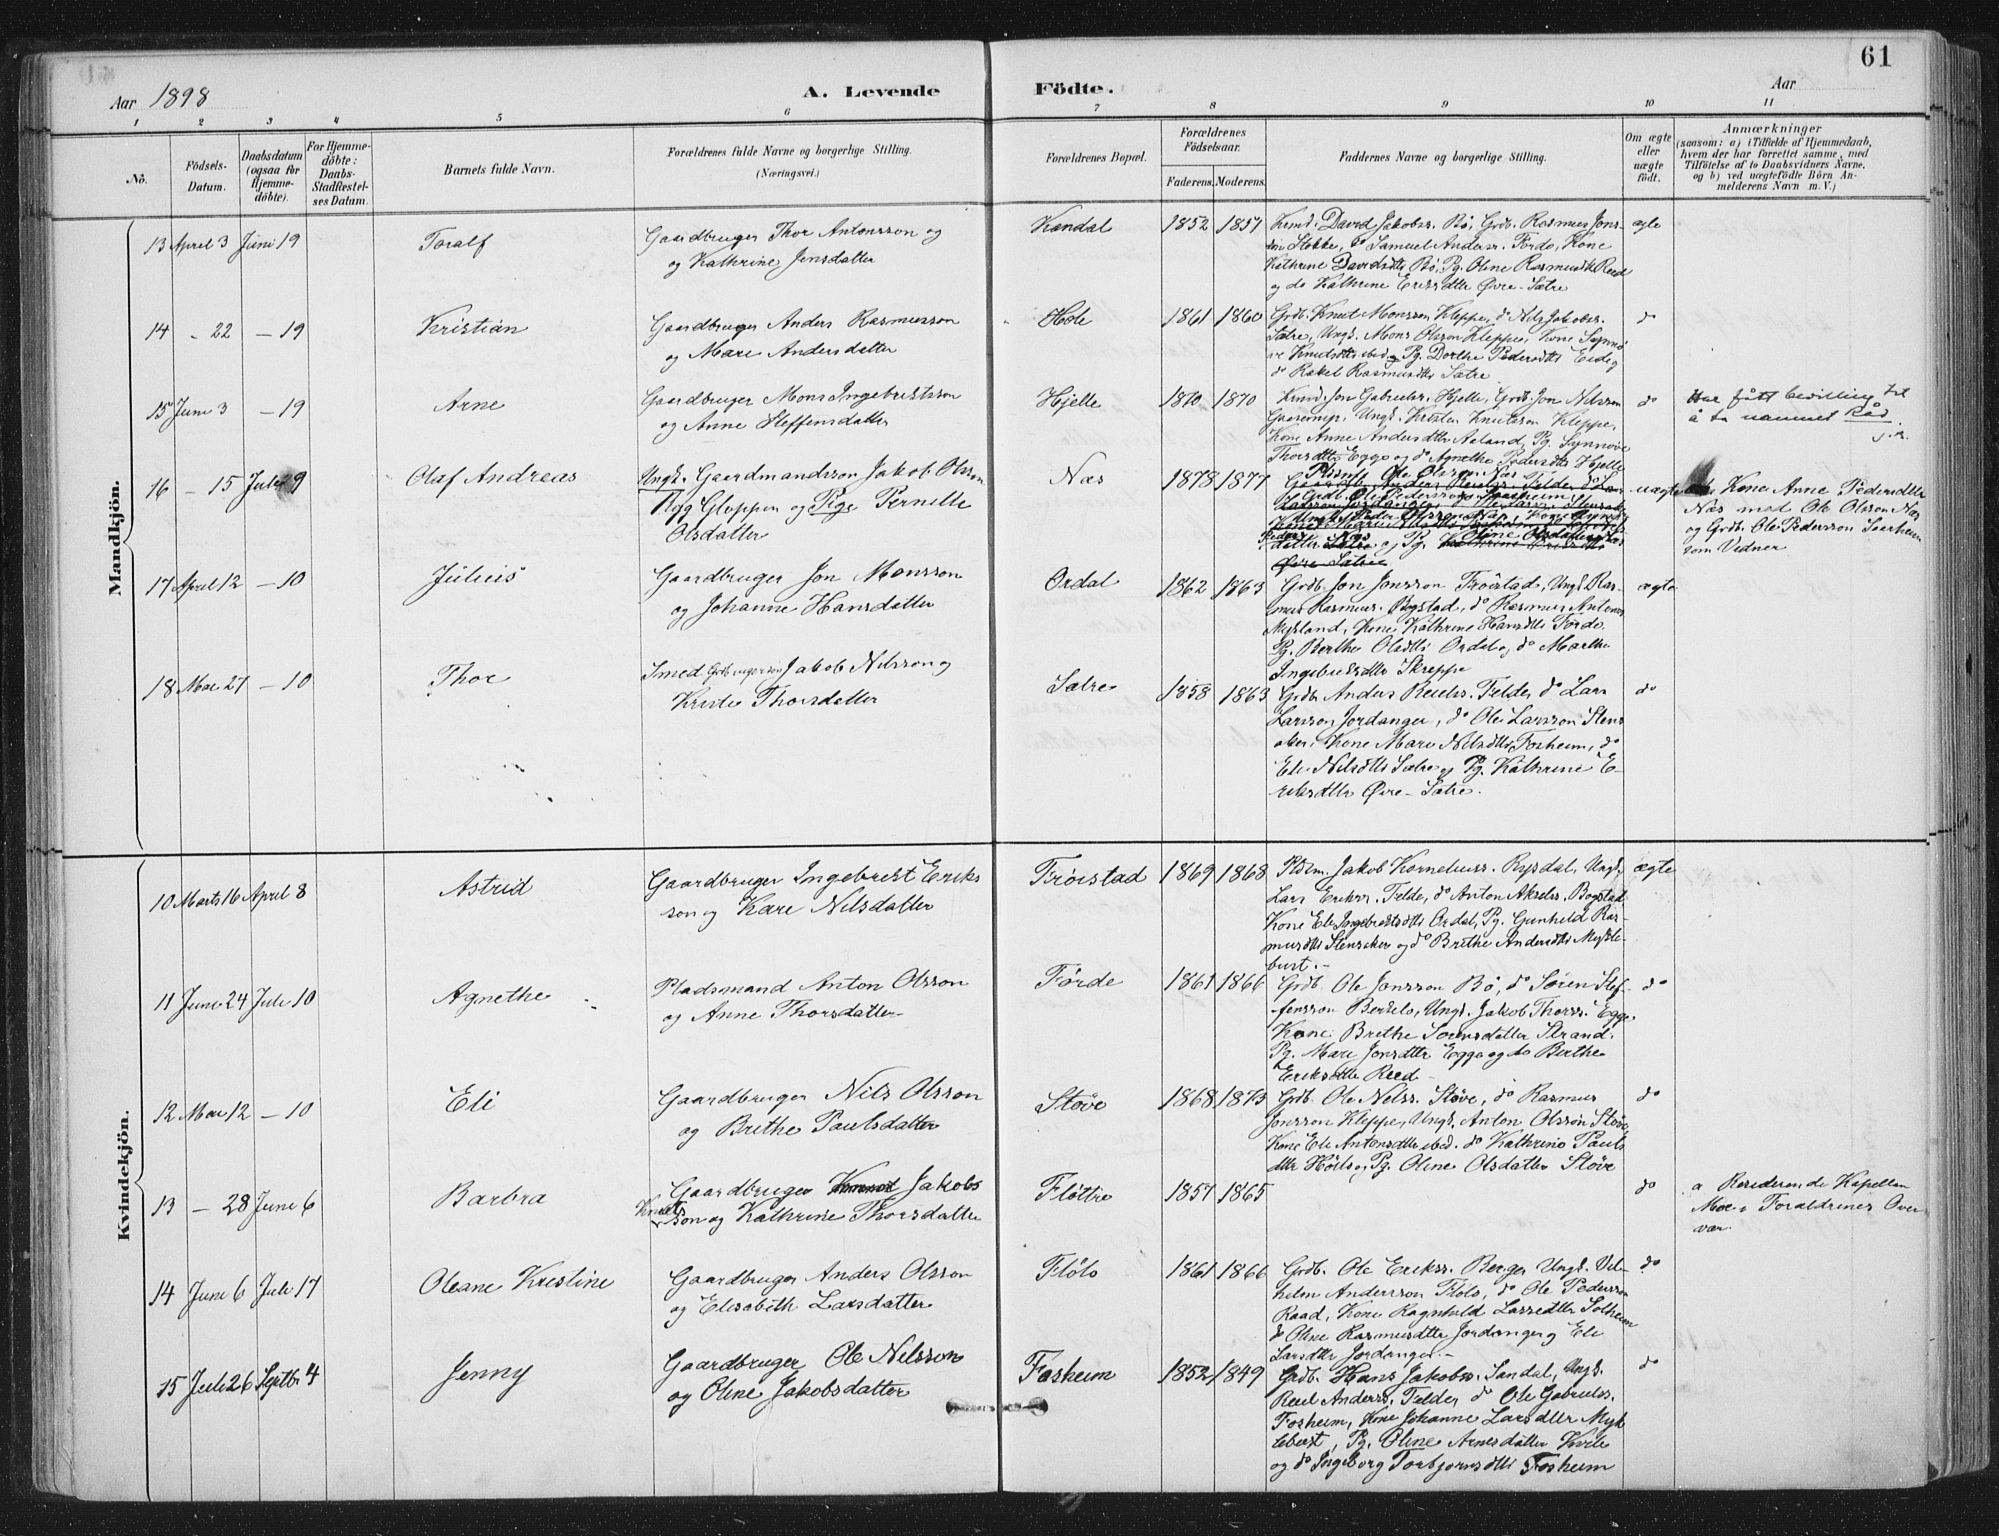 61
Aar 1898 A. Levende Födte. Aar
1 2 3 4 5 6 7 8 9 10 11
No.
Födsels-
Datum.
Daabsdatum
(ogsaa for
Hjemme-
döbte).
For Hjemme-
döbte:
Daabs-
Stadfæstel-
ses Datum.
Barnets fulde Navn.
Forældrenes fulde Navne og borgerlige Stilling.
(Næringsvei.)
Forældrenes Bopæl.
Forældrenes
Födselsaar.
Faderens. Moderens.
Faddernes Navne og borgerlige Stilling.
Om ægte
eller
uægte
födt.
Anmærkninger
(saasom: a) i Tilfælde af Hjemmedaab,
hvem der har forrettet samme, med
Tilföielse af to Daabsvidners Navne,
og b) ved uægtefödte Börn An-
melderens Navn m. V.)
Mandkjön.
13 April 3 Juni 19 Toralf
Gaardbruger Thor Antonsson og
og Kathrine Jensdatter
Kandal 1852 1857
Kmd. David Jakobss. Bø, Grdb. Rasmus Jons-
son Stokke, do Samuel Anderss. Førde, Kone
Kathrine Davidsdtr Bø, Pg. Oline Rasmusdtr Reed
og do Kathrine Eriksdtr Øvre-Sætre
ægte
14 - 22 - 19 Kristian
Gaardbruger Anders Rasmusson
og Mari Andersdatter
Hole 1861 1860
Grdb. Knut Monsson Kleppe, do Nils Jakobss.
Sætre, Ungk. Mons Olsson Kleppe, Kone Synnø-
ve Knutsdtr ibid. Pg. Dorthe Pedersdtr Eide og
do Rakel Rasmusdtr Sætre
do
15 Juni 3 - 19 Arne
Gaardbruger Mons Ingebrigtsson
og Anne Steffensdatter
Hjelle 1870 1870
Kmd. Jon Gabrielss. Hjelle, Grdb. Jon Nilsson
Ungk. Kristen Knutsson Kleppe,
Kone Anne Andersdtr Aaland, Pg. Synnøve
Thorsdtr Egge og do Agnethe Pedersdtr Hjelle
do
Har fått bevilling til
å ta navnet Råd
16 - 15 Juli 9 Olaf Andreas
Ungk. Gaardmandsson Jakob Olsson
Rygg Gloppen og Pige Pernille
Olsdatter
Næs 1878 1877
Pladsmf. Ole Olsson Næs
Grdb. Ole Pedersson Saarheim,
Ungk. Peder Olsson Næs, Kone
datter Næs og Pg. Oline Olsdatter
Øvre Sætre
uægte
Kone Anne Pedersdtr
Næs med Ole Olsson Næs
og Grdb. Ole Pedersson Saarheim
som Vidner
17 April 12 - 10 Julius
Gaardbruger Jon Monsson
og Johanne Hansdatter
Ordal 1862 1863
Grdb. Jon Jonsson Frøistad, Ungk. Ras-
mus Rasmuss. Bogstad, do Rasmus Antonss
Mykland, Kone Kathrine Hansdtr Førde
Pg. Berthe Olsdtr Ordal og do Marthe
Ingebrigtsdtr Skreppa
ægte
18 Mai 27 - 10 Thor
Smed Grdbrugersøn Jakob Nilsson og
Kristi Thorsdatter
Sætre 1858 1863
Grdb. Anders Reiels. Felde, do Lars
Larsson Jordanger, do Ole Larsson Stens-
aker, Kone Mari Nilsdtr Fosheim, do
Eli Nilsdtr Sætre og Pg. Kathrine E-
riksdtr Øvre-Sætre.
do
Kvindekjön.
10 Marts 16 April 8 Astrid
Gaardbruger Ingebrigt Eriks
son og Kari Nilsdatter
Frøistad 1869 1868
Pldsm. Jakob Korneliuss. Rysdal, Ungk.
Lars Erikss. Felde, do Anton Akselss. Bogstad
Kone Eli Ingebrigtsdtr Ordal, Pg. Gunhild Ras-
musdtr Stensaker og do Brithe Andersdtr Mykle-
bust.-
ægte
11 Juni 24 Juli 10 Agnethe
Pladsmand Anton Olsson
og Anne Thorsdatter
Førde 1861 1866
Grdb. Ole Jonsson Bø, do Søren Stef-
fensson Berdelo, Ungk. Jakob Thorss. Egge
Kone Brithe Sørensdatter Strand,
Pg. Mari Jonsdtr Egge og do Berthe
Eriksdtr Reed
do
12 Mai 12 - 10 Eli
Gaardbruger Nils Olsson
og Brithe Paulsdatter
Støve 1868 1873
Grdb. Ole Nilss. Støve, do Rasmus
Jonsson Kleppe, Ungk. Anton Olsson Støve
Kone Eli Antonsdtr ibid. do Kathrine Pauls
dtr Høilo og Pg. Oline Olsdatter Støve
do
13 - 28 Juni 6 Barbra
Gaardbruger Jakobs
Knuts
son og Kathrine Thorsdatter
Fløttre 1857 1865
do
a Residerende Kapellan
Moe i Forældrenes Over
vær.
14 Juni 6 Juli 17 Oleane Kristine
Gaardbruger Anders Olsson
og Elisabeth Larsdatter
Fløtö 1861 1866
Grdb. Ole Erikss. Berge, Ungk. Vil-
helm Andersson Fløto, do Ole Pedersson
Raad, Kone Ragnhild Larsdtr Solheim
do Oline Rasmusdtr Jordanger og Eli
Larsdtr Jordanger.-
do
15 Juli 26 Septbr 4 Jenny
Gaardbruger Ole Nilsson
og Oline Jakobsdatter
Fosheim 1852 1849
Grdb. Hans Jakobss. Sandal, Ungk.
Reiel Anderss. Felde, do Ole Gabrielss.
Fosheim, Kone Johanne Larsdtr Myk-
lebust, Pg. Oline Arnesdatter Kvile
og do Ingeborg Torbjørnsdtr Fosheim
do